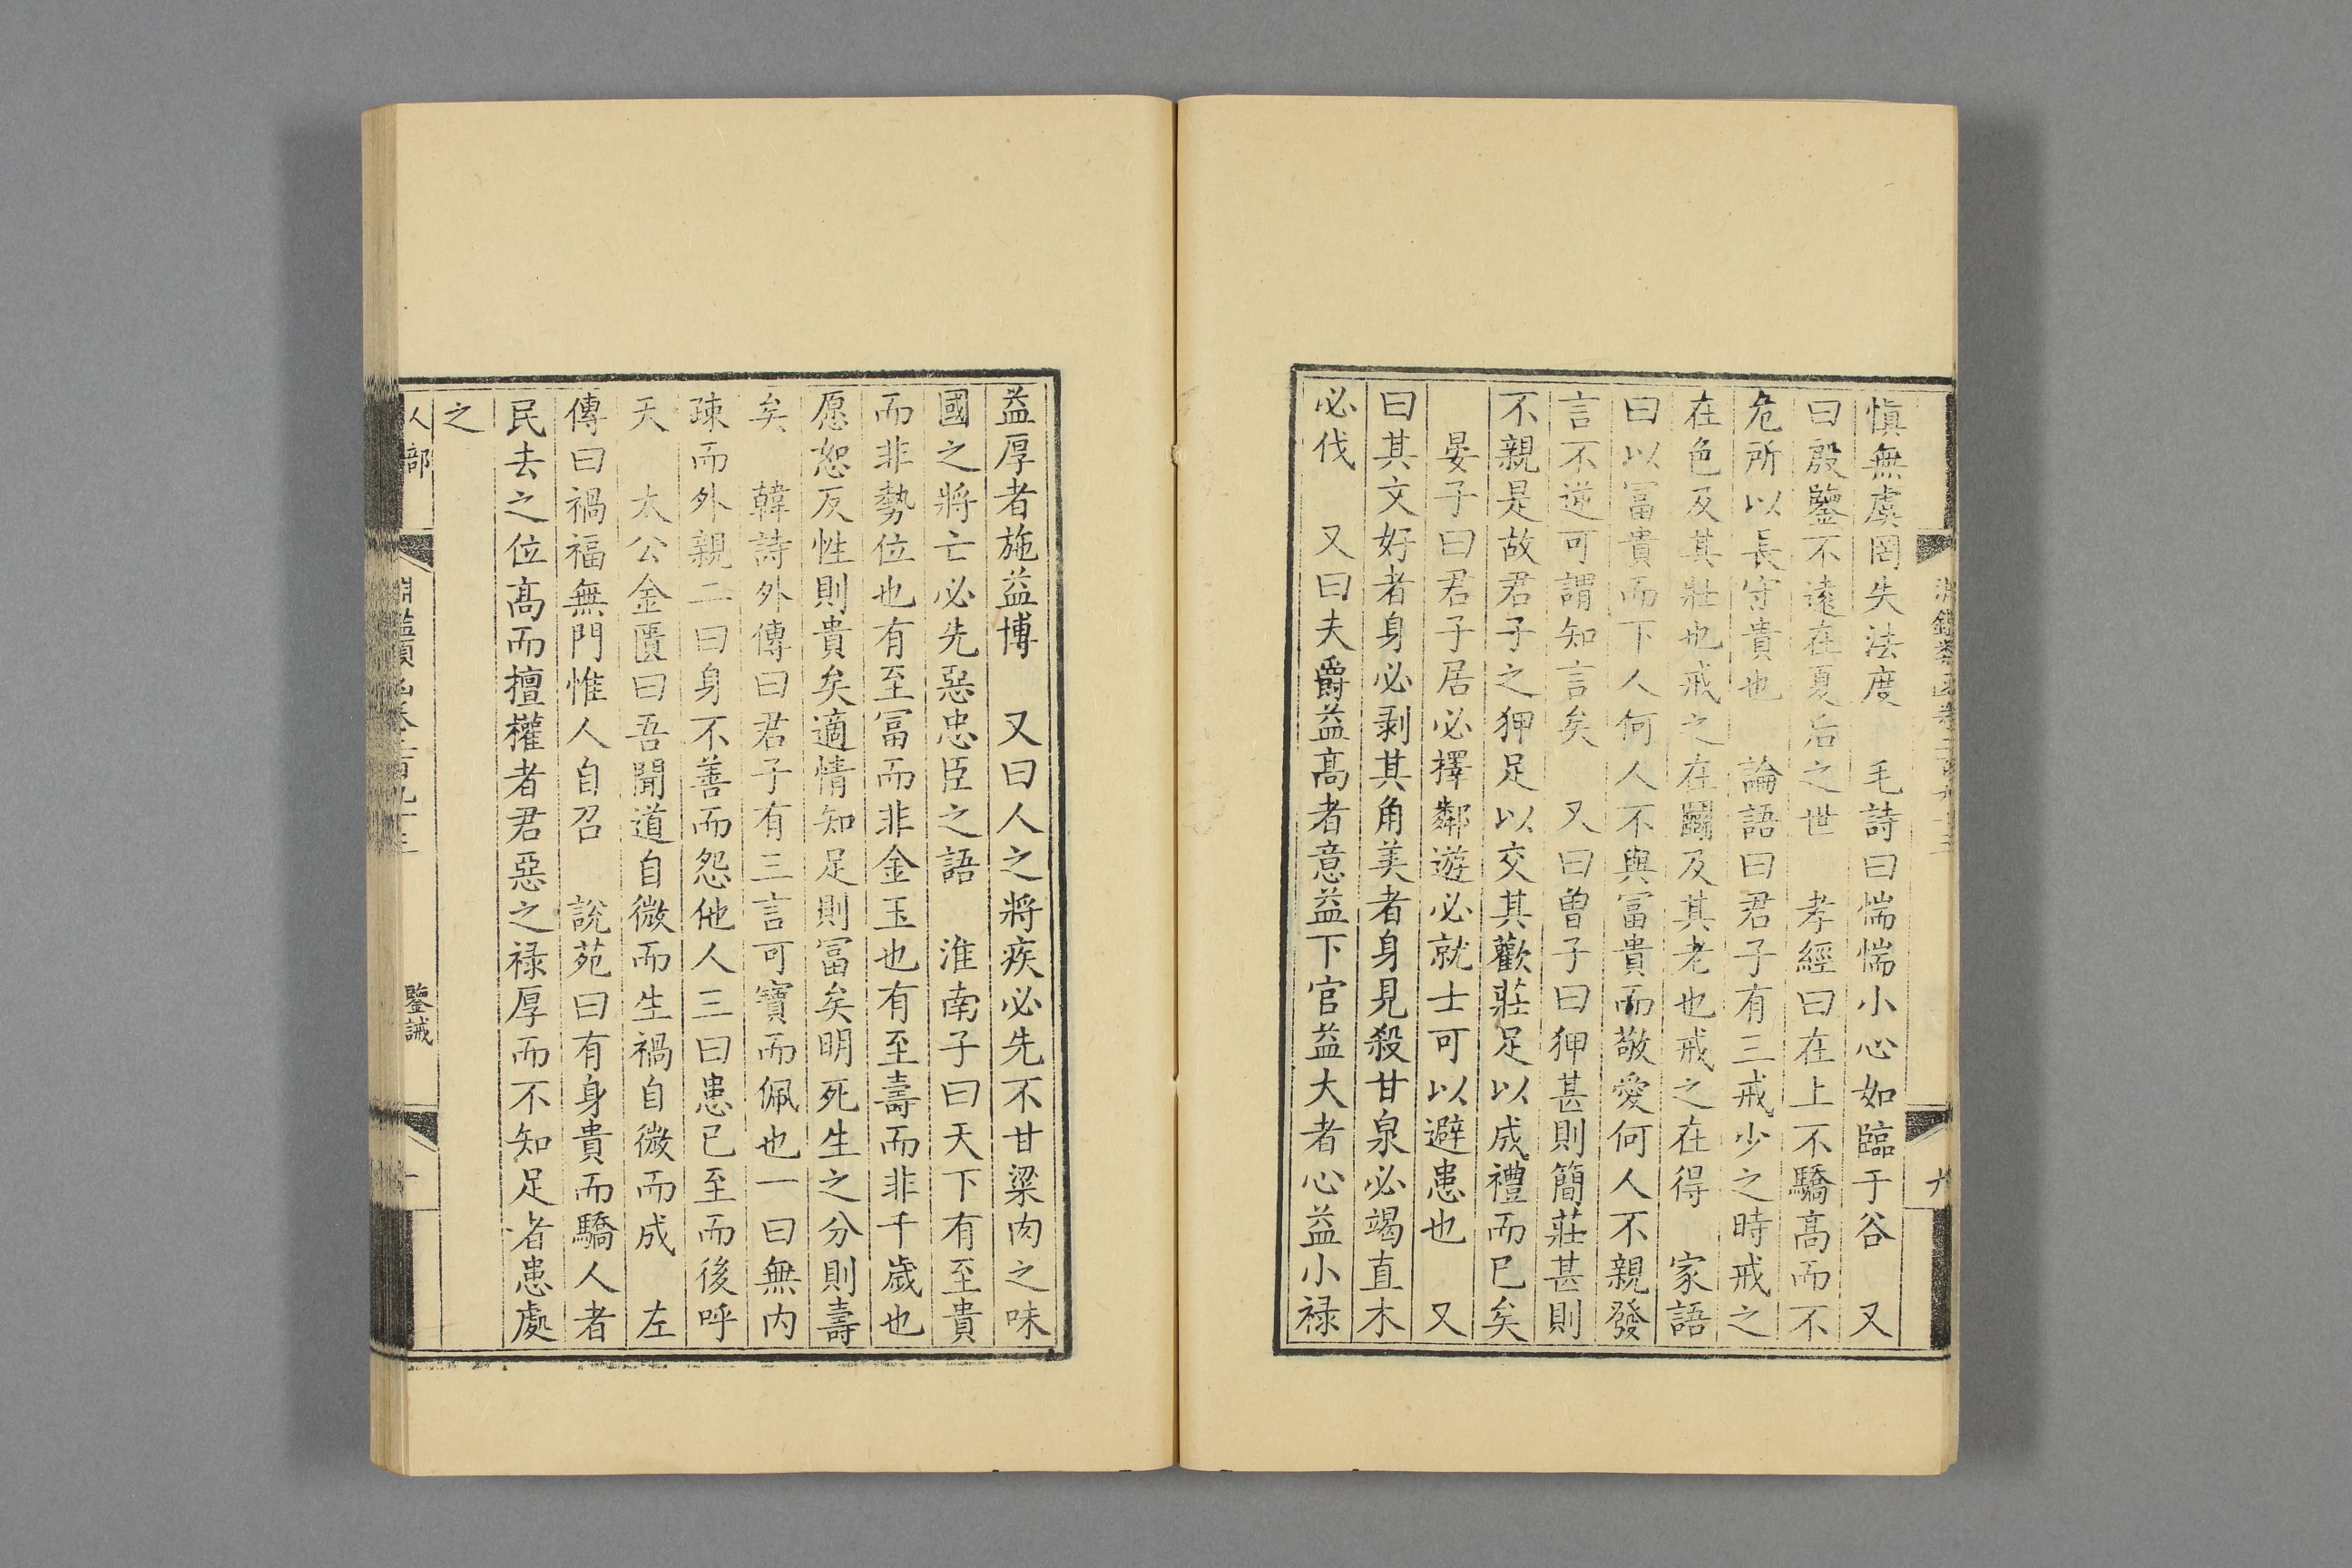 慎無虞罔失法度　毛詩曰惴惴小心如臨于谷　又
曰殷鑒不遠在夏后之世　孝經曰在上不驕高而不
危所以長守貴也　論語曰君子有三戒少之時戒之
在色及其壯也戒之在鬬及其老也戒之在得　家語
曰以富貴而下人何人不與富貴而敬愛何人不親發
言不逆可謂知言矣　又曰曾子曰狎甚則簡莊甚則
不親是故君子之狎足以交其歡莊足以成禮而已矣
晏子曰君子居必擇鄰遊必就士可以避患也　又
曰其文好者身必剥其角美者身見殺甘泉必竭直木
必伐　又曰夫爵益高者意益下官益大者心益小禄
益厚者施益博　又曰人之將疾必先不甘粱肉之味
國之將亡必先惡忠臣之語　淮南子曰天下有至貴
而非勢位也有至富而非金玉也有至壽而非千歲也
愿恕反性則貴矣適情知足則富矣明死生之分則壽
矣　韓詩外傳曰君子有三言可寶而佩也一曰無内
疎而外親二曰身不善而怨他人三曰患已至而後呼
天　太公金匱曰吾聞道自微而生禍自微而成　左
傳曰禍福無門惟人自召　說苑曰有身貴而驕人者
民去之位高而擅權者君惡之禄厚而不知足者患處
之
人部
鑒誡